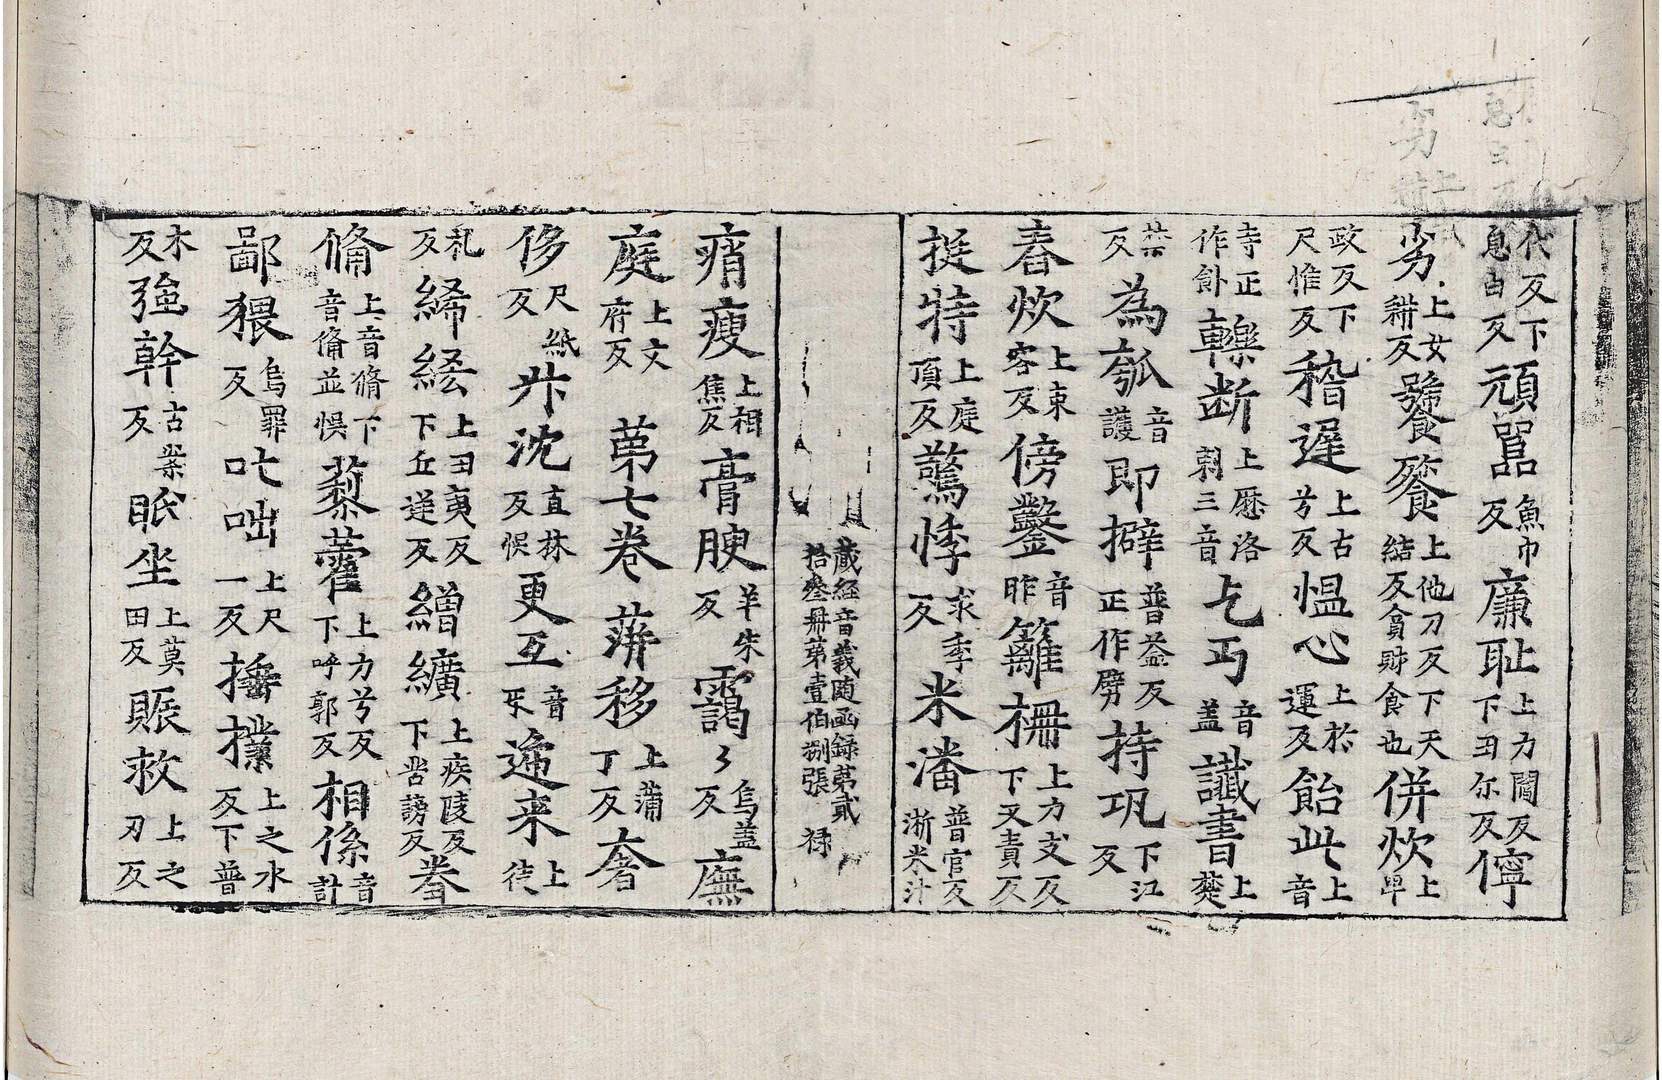 代反下息由反頑嚚魚巾反廉耻上力閻反下丑尔反儜
劣上女耕反饕餮上他刀反下天結反貪財食也併炊上
政反下尺惟反稽遟上古兮反愠心上於運反飴此上音
寺正作飤轢断上歷洛剌三音乞丐音盖讖書上楚
禁反為瓠音護即擗普益反正作劈持㺬下江反
舂炊上束容反傍鑿音昨籬柵上力支反下叉責反
挺特上庭頂反驚悸求季反米潘普官反淅米汁
藏經音義随函録苐貳
拾叄册苐壹伯捌張 禄
痟瘦上相焦反膏腴羊朱反靄〻烏盖反廡
庭上文府反 苐七卷 蓱移上蒲丁反奢
侈尺紙反卝沈直林反悮更互音𠄨逓来上徒
礼反絺綌上丑夷反下丘逆反繒纊上疾陵反下苦謗反羞
脩上音脩下音俻並悮藜藿上力兮反下呼郭反相係音計
鄙猥烏罪反叱咄上尺一反捶撲上之水反下普
木反強幹古案反眠坐上莫田反賑救上之刃反